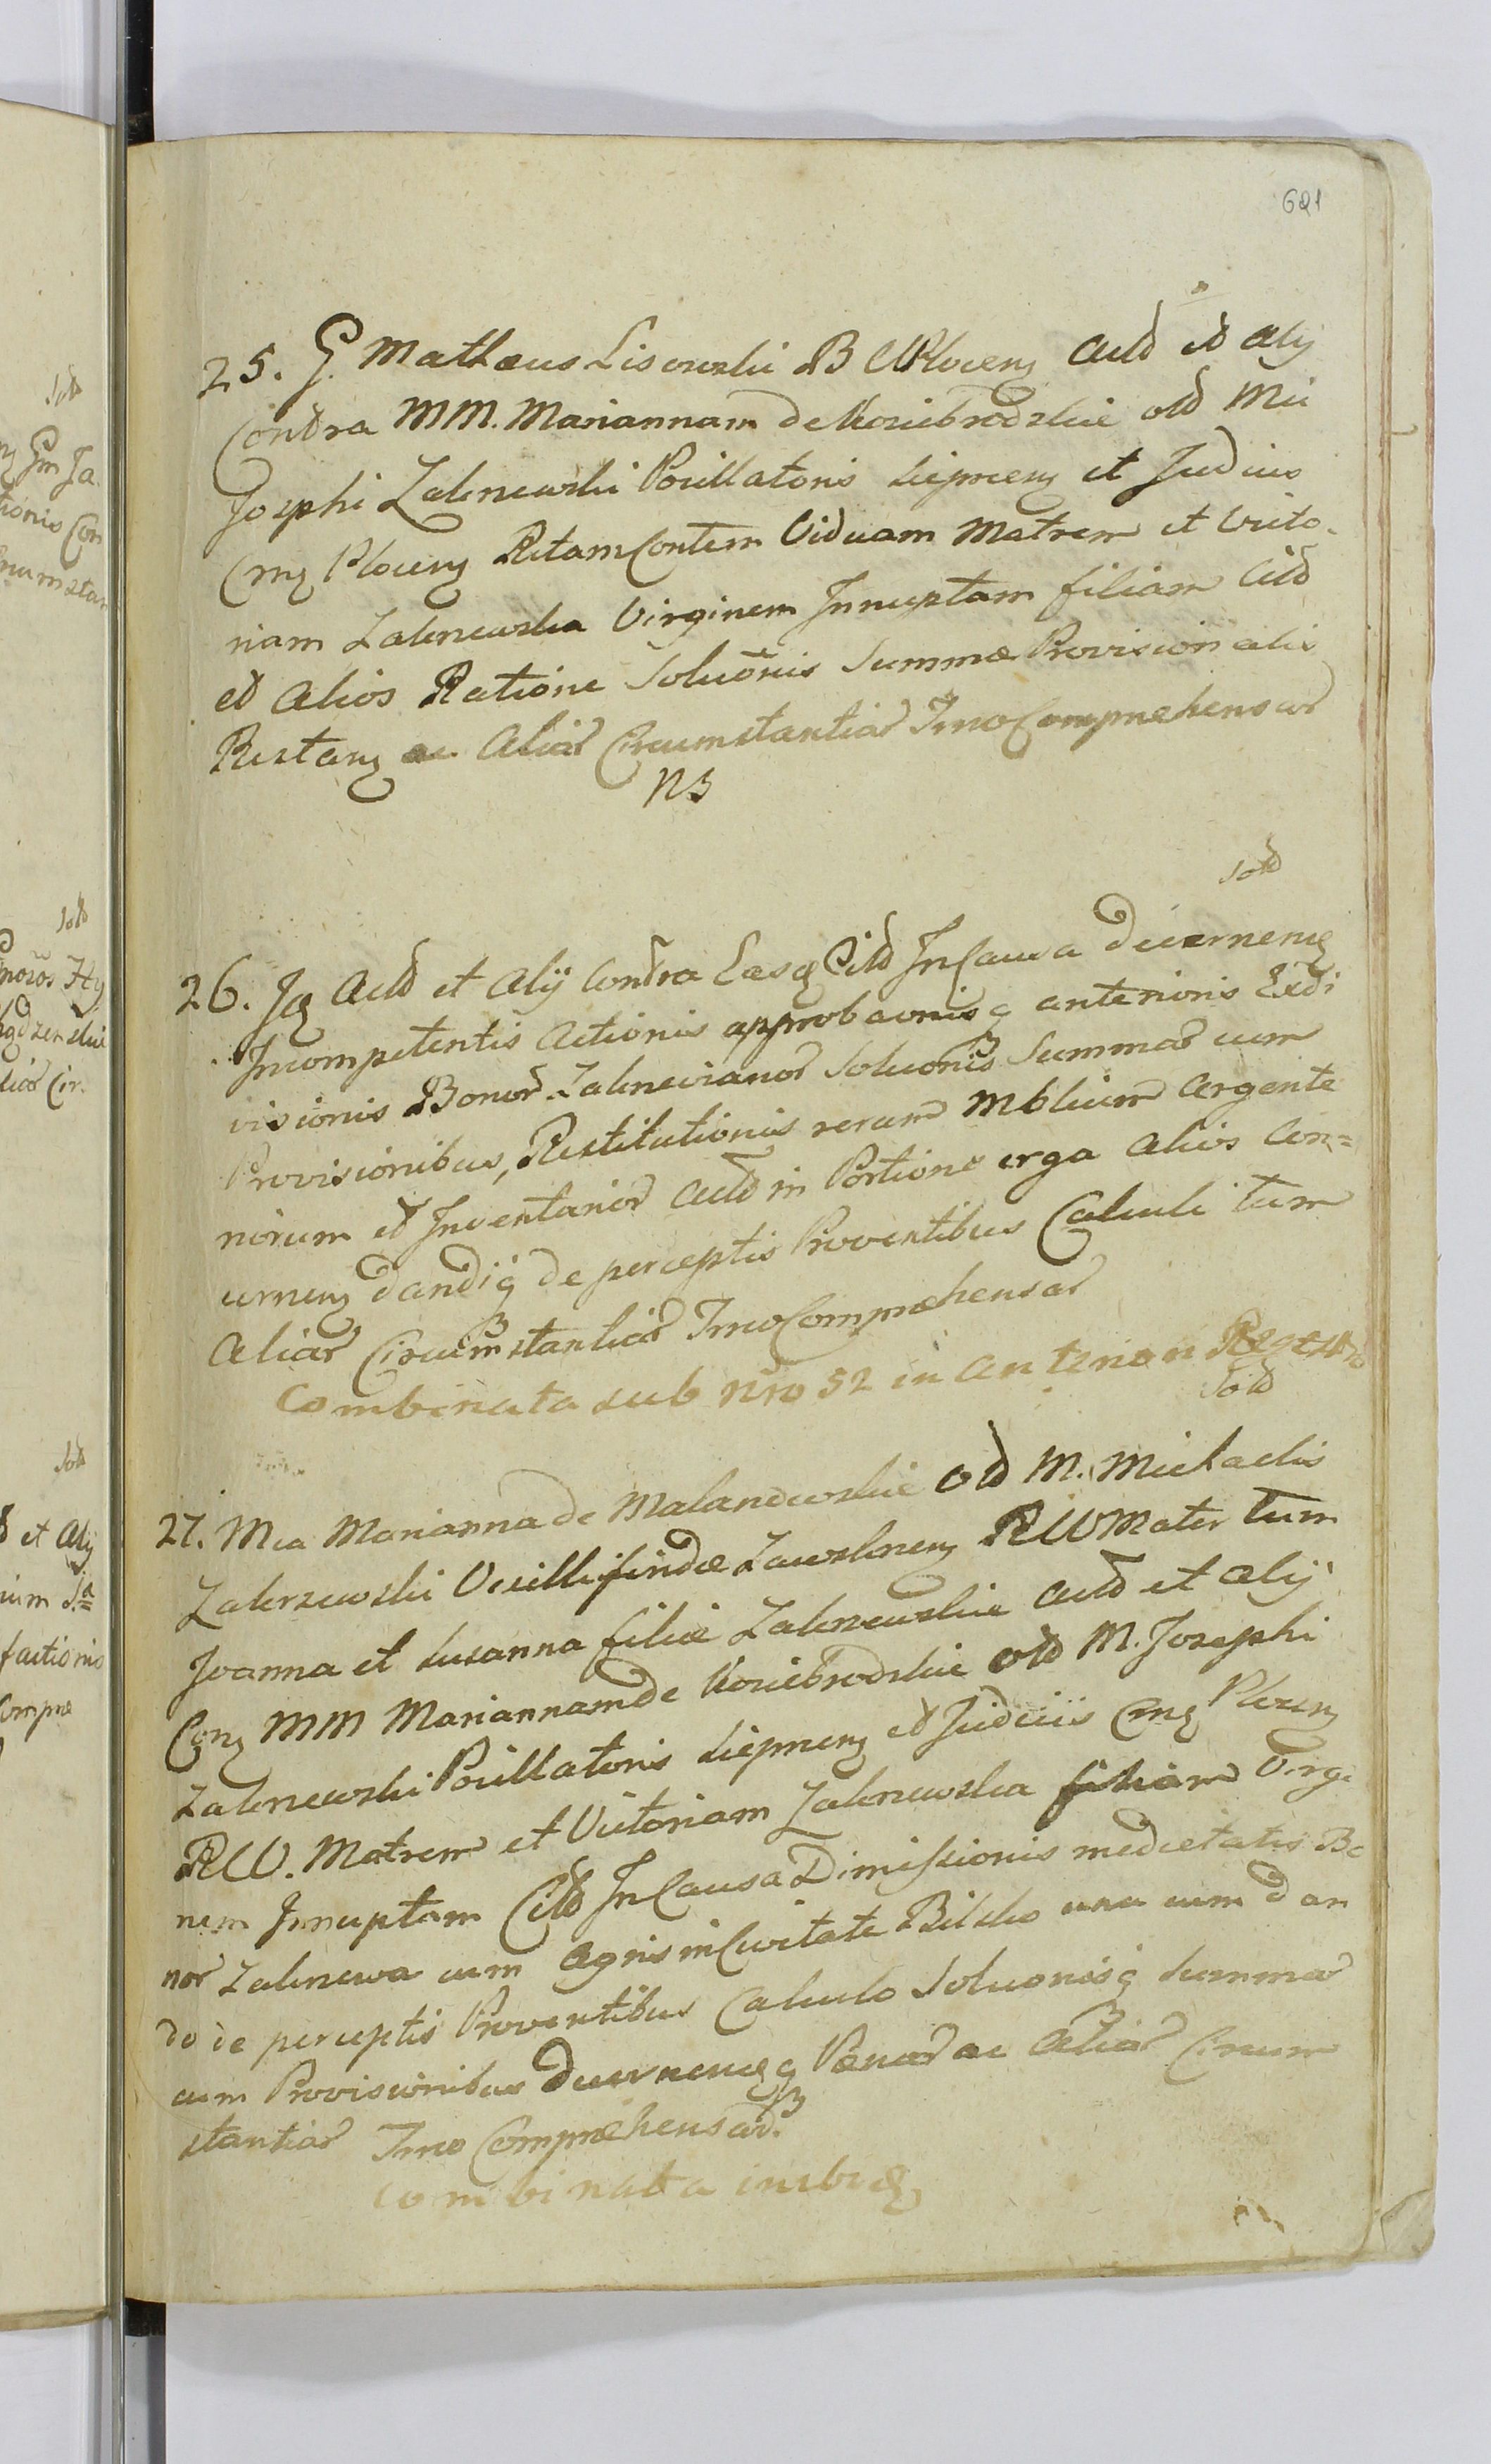 621
25. G. Mathæus Lisowski B Ploceng Actd et Alij
Contra MM. Mariannam de Koziebrodzkie old Mci
Josephi Zalenewski Pocillatoris Siepreng et Judicis
Cong Ploceng Relictam Viduam Matrem et Victo-
riam Zalenewska Virginem Innuptam filiam Citd
et Alios Ratione Soluonis Summæ Provisionalis
Restang ac Aliar Circumstantiar Inno Compræhensar
NB
Sotd
26. Jq Actd et Alij Contra Easq Citd In Causa Decerneng
Incompetentis Actionis approbaonisq anterioris Exdi
visionis Bonor Zalenewianor Soluonis Summar cum
Provisionibus, Restitutionis rerum Mblium Argente
norum et Inventarior Actd in Portione erga Alios Con=
cerneng dandiq de perceptis Proventibus Calculi tum
Aliar Circumstantiar Inno Compræhensar
Combinata sub Nro 52 in anteriori Regestro
Sotd
27. Mca Marianna de Malanowskie old M. Michaelis
Zalenewski Vexilliferidæ Zawskreng R W Mater tum
Joanna et Susanna filiæ Zalenewskie Actd et Alij
Cong MM Mariannam de Koziebrodzkie old M. Josephi
Zalenewski Pocillatoris Siepreng et Judicis Cong Ploceng
R W. Matrem et Victoriam Zalenewska filiam Virgi
nem Innuptam Citd In Causa Dimissionis medietatis Bo
nor Zalenewa cum Agris in Civitate Bilsko una cum dan
do de perceptis Proventibus Calculo Soluonisq Summar
cum Provisionibus Decernengq Pænar ac Aliar Circum
stantiar Inno Compræhensar.
Combinata in ubiq